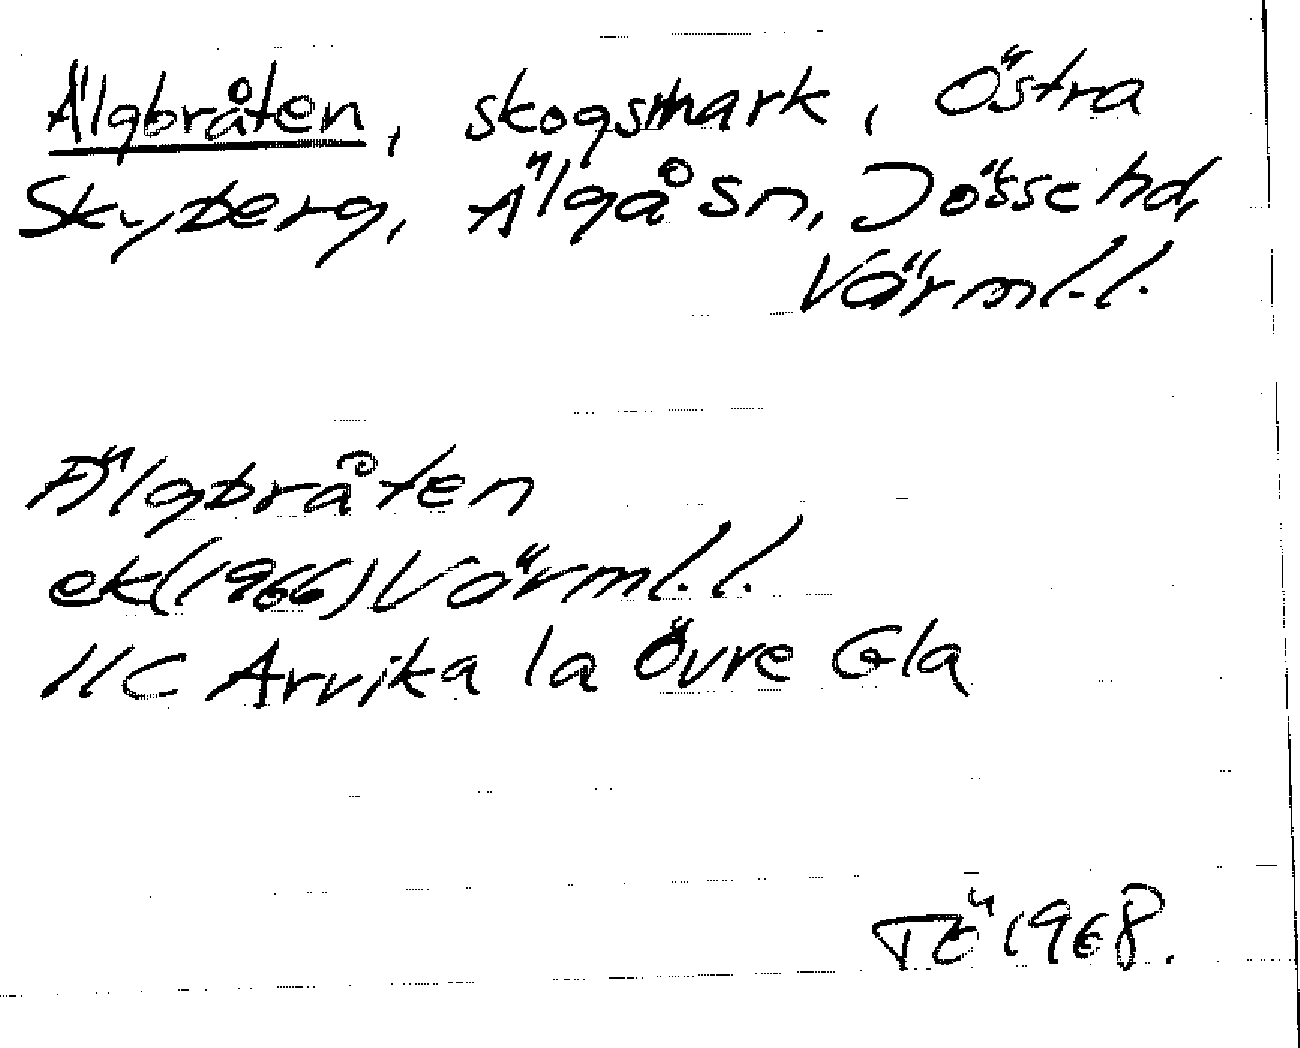 Älgbråten, skogsmark, Östra
Skyberg, Älgå sn, Jösse hd,
Värml. l.
Älgbråten
ek (1966) Värml. l.
11C Arvika 1a Övre Gla
TÖ 1968.